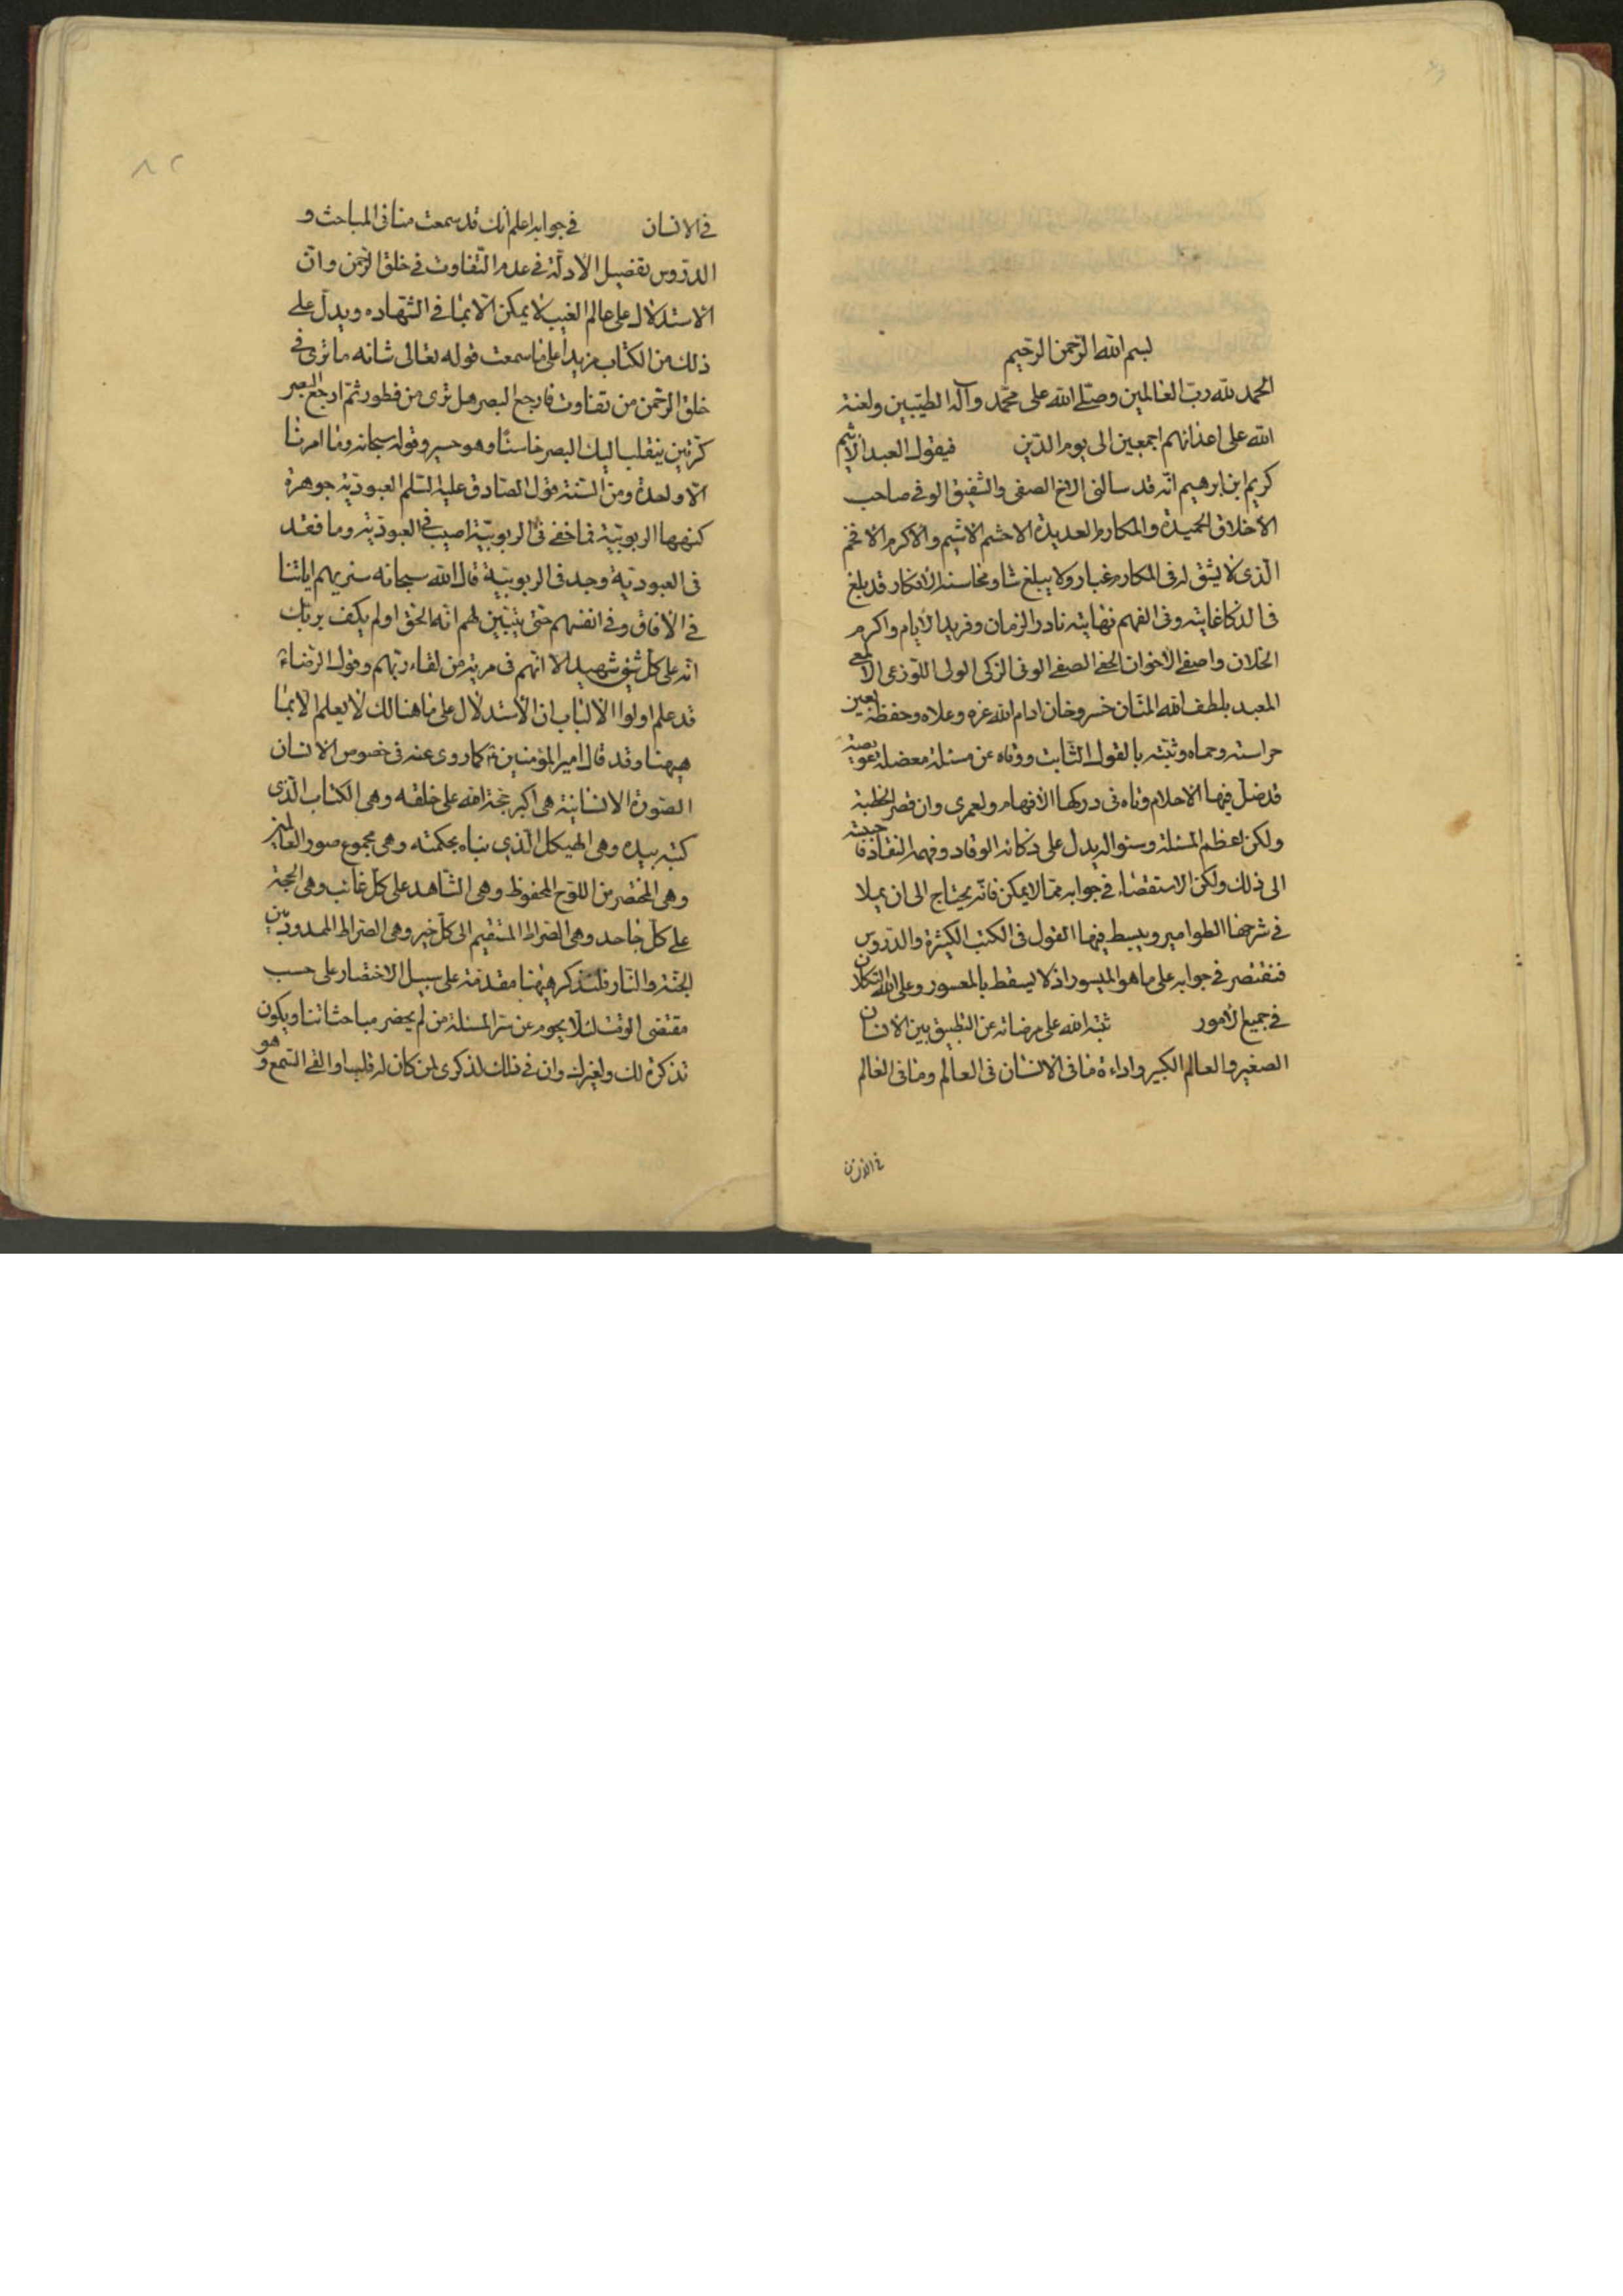 بسم الله الرحمن الرحیم
الحمد لله رب العالمین وصلی الله علی محمد وآله الطیبین ولعنة
الله علی اعدائهم اجمعین الی یوم الدین فیقول العبد الاثیم
کریم ابن ابرهیم انه قد سالنی الاخ الصفی والشفیق الوفی صاحب
الاخلاق الحمیدة والمکارم العدیدة الاحشم الاشیم والاکرم الافخم
الذی لا یشق له فی المکارم غبار ولا یبلغ شاو محاسنه الافکار قد بلغ
فی الذکا غایته وفی الفهم نهایته نادر الزمان وفرید الایام واکرم
الخلان واصفی الاخوان الحفی الصفی الوفی الزکی الولی اللوذعی الالمعی
المعبد بلطف الله المنان خسروخان ادام الله عزه وعلاه وحفظه بعین
حراسته وحماه وثبته بالقول الثابت ووقاه عن مسئلة معضلة عویصة
قد ضل فیها الاحلام وتاه فی درکها الافهام ولعمری وان قصر الخطبة
ولکن اعظم المسئلة وسئواله یدل علی ذکائه الوقاد وفهمه النقاد
الی ذلک ولکن الاستقصاء فی جوابه مما لا یمکن فانه یحتاج الی ان یملا
فی شرحها الطوامیر ویبسط فیها القول فی الکتب الکثیرة والدروس
فنقتصر فی جوابه علی ما هو المیسور اذ لا یسقط بالمعسور وعلی الله التکلان
فی جمیع الامور ثبته الله علی مرضاته عن التطبیق بین الانسان
الصغیر والعالم الکبیر واراءة ما فی الانسان فی العالم وما فی العالم
فی الانسان
۸۲
فی الانسان فی جوابه اعلم انک قد سمعت منا فی المباحث و
الدروس تفصیل الادلة فی عدم التفاوت فی خلق الرحمن وان
الاستدلال علی عالم الغیب لا یمکن الا بما فی الشهاده ویدل علی
ذلک من الکتاب مزیدا علی ما سمعت قوله تعالی شانه ما تری فی
خلق الرحمن من تفاوت فارجع البصر هل تری من فطور ثم ارجع البصر
کرتین ینقلب الیک البصر خاسئا وهو حسیر وقوله سبحانه وما امرنا
الا واحدة ومن السنة قول الصادق علیه السلم العبودیة جوهرة
کنهها الربوبیة فما خفی فی الربوبیة اصیب فی العبودیة وما فقد
فی العبودیة وجد فی الربوبیة قال الله سبحانه سنریهم ایاتنا
فی الافاق وفی انفسهم حتی یتبین لهم انه الحق اولم یکف بربک
انه علی کل شیء شهید الا انهم فی مریة من لقاء ربهم وقول الرضاء
قد علم اولوا الالباب ان الاستدلال علی ما هنالک لا یعلم الا بما
هیهنا وقد قال امیر المؤمنین ع کما روی عنه فی خصوص الانسان
الصورة الانسانیة هی اکبر حجة الله علی خلقه وهی الکتاب الذی
کتبه بیده وهی الهیکل الذی بناه بحکمته وهی مجموع صور العالمین
وهی المختصر من اللوح المحفوظ وهی الشاهد علی کل غائب وهی الحجة
علی کل جاحد وهی الصراط المستقیم الی کل خیر وهی الصراط الممدود بین
الجنة والنار فلنذکر هیهنا مقدمة علی سبیل الاختصار علی حسب
مقتضی الوقت لئلا یحوم عن سر المسئلة من لم یحضر مباحثاتنا ویکون
تذکرة لک ولغیرک وان فی ذلک لذکری لمن کان له قلب او القی السمع وهو